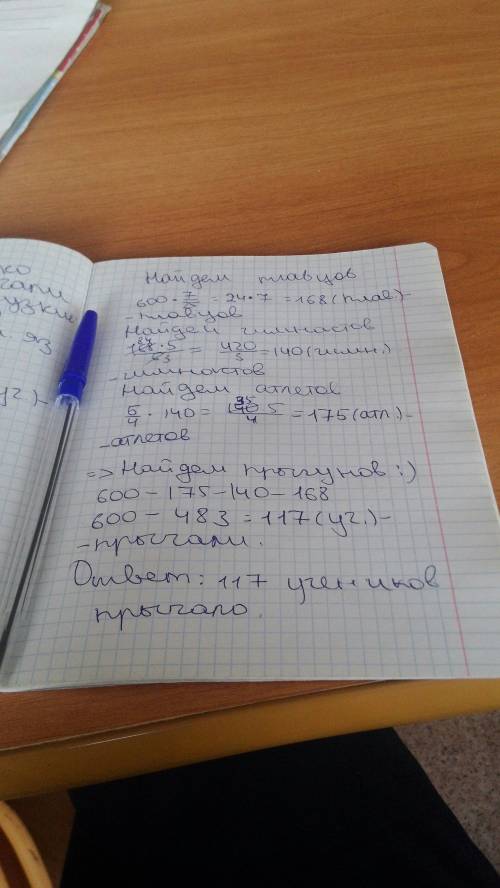 ко
гали
узкие
. яз
уч.)-
Найдем плавцов
600 · 7/25 = 24 · 7 = 168 (плав)-
- плавцов
Найдем гимнастов
168 · 5 / 63 = 420/3 = 140 (гимн.)
- гимнастов
Найдем атлетов
5/4 · 140 = 140 · 5 / 4 = 175 (атл.)-
- атлетов
=> Найдем прыгунов :)
600 - 175 - 140 - 168
600 - 483 = 117 (уч.)-
- прыгали.
Ответ: 117 учеников
прыгало.